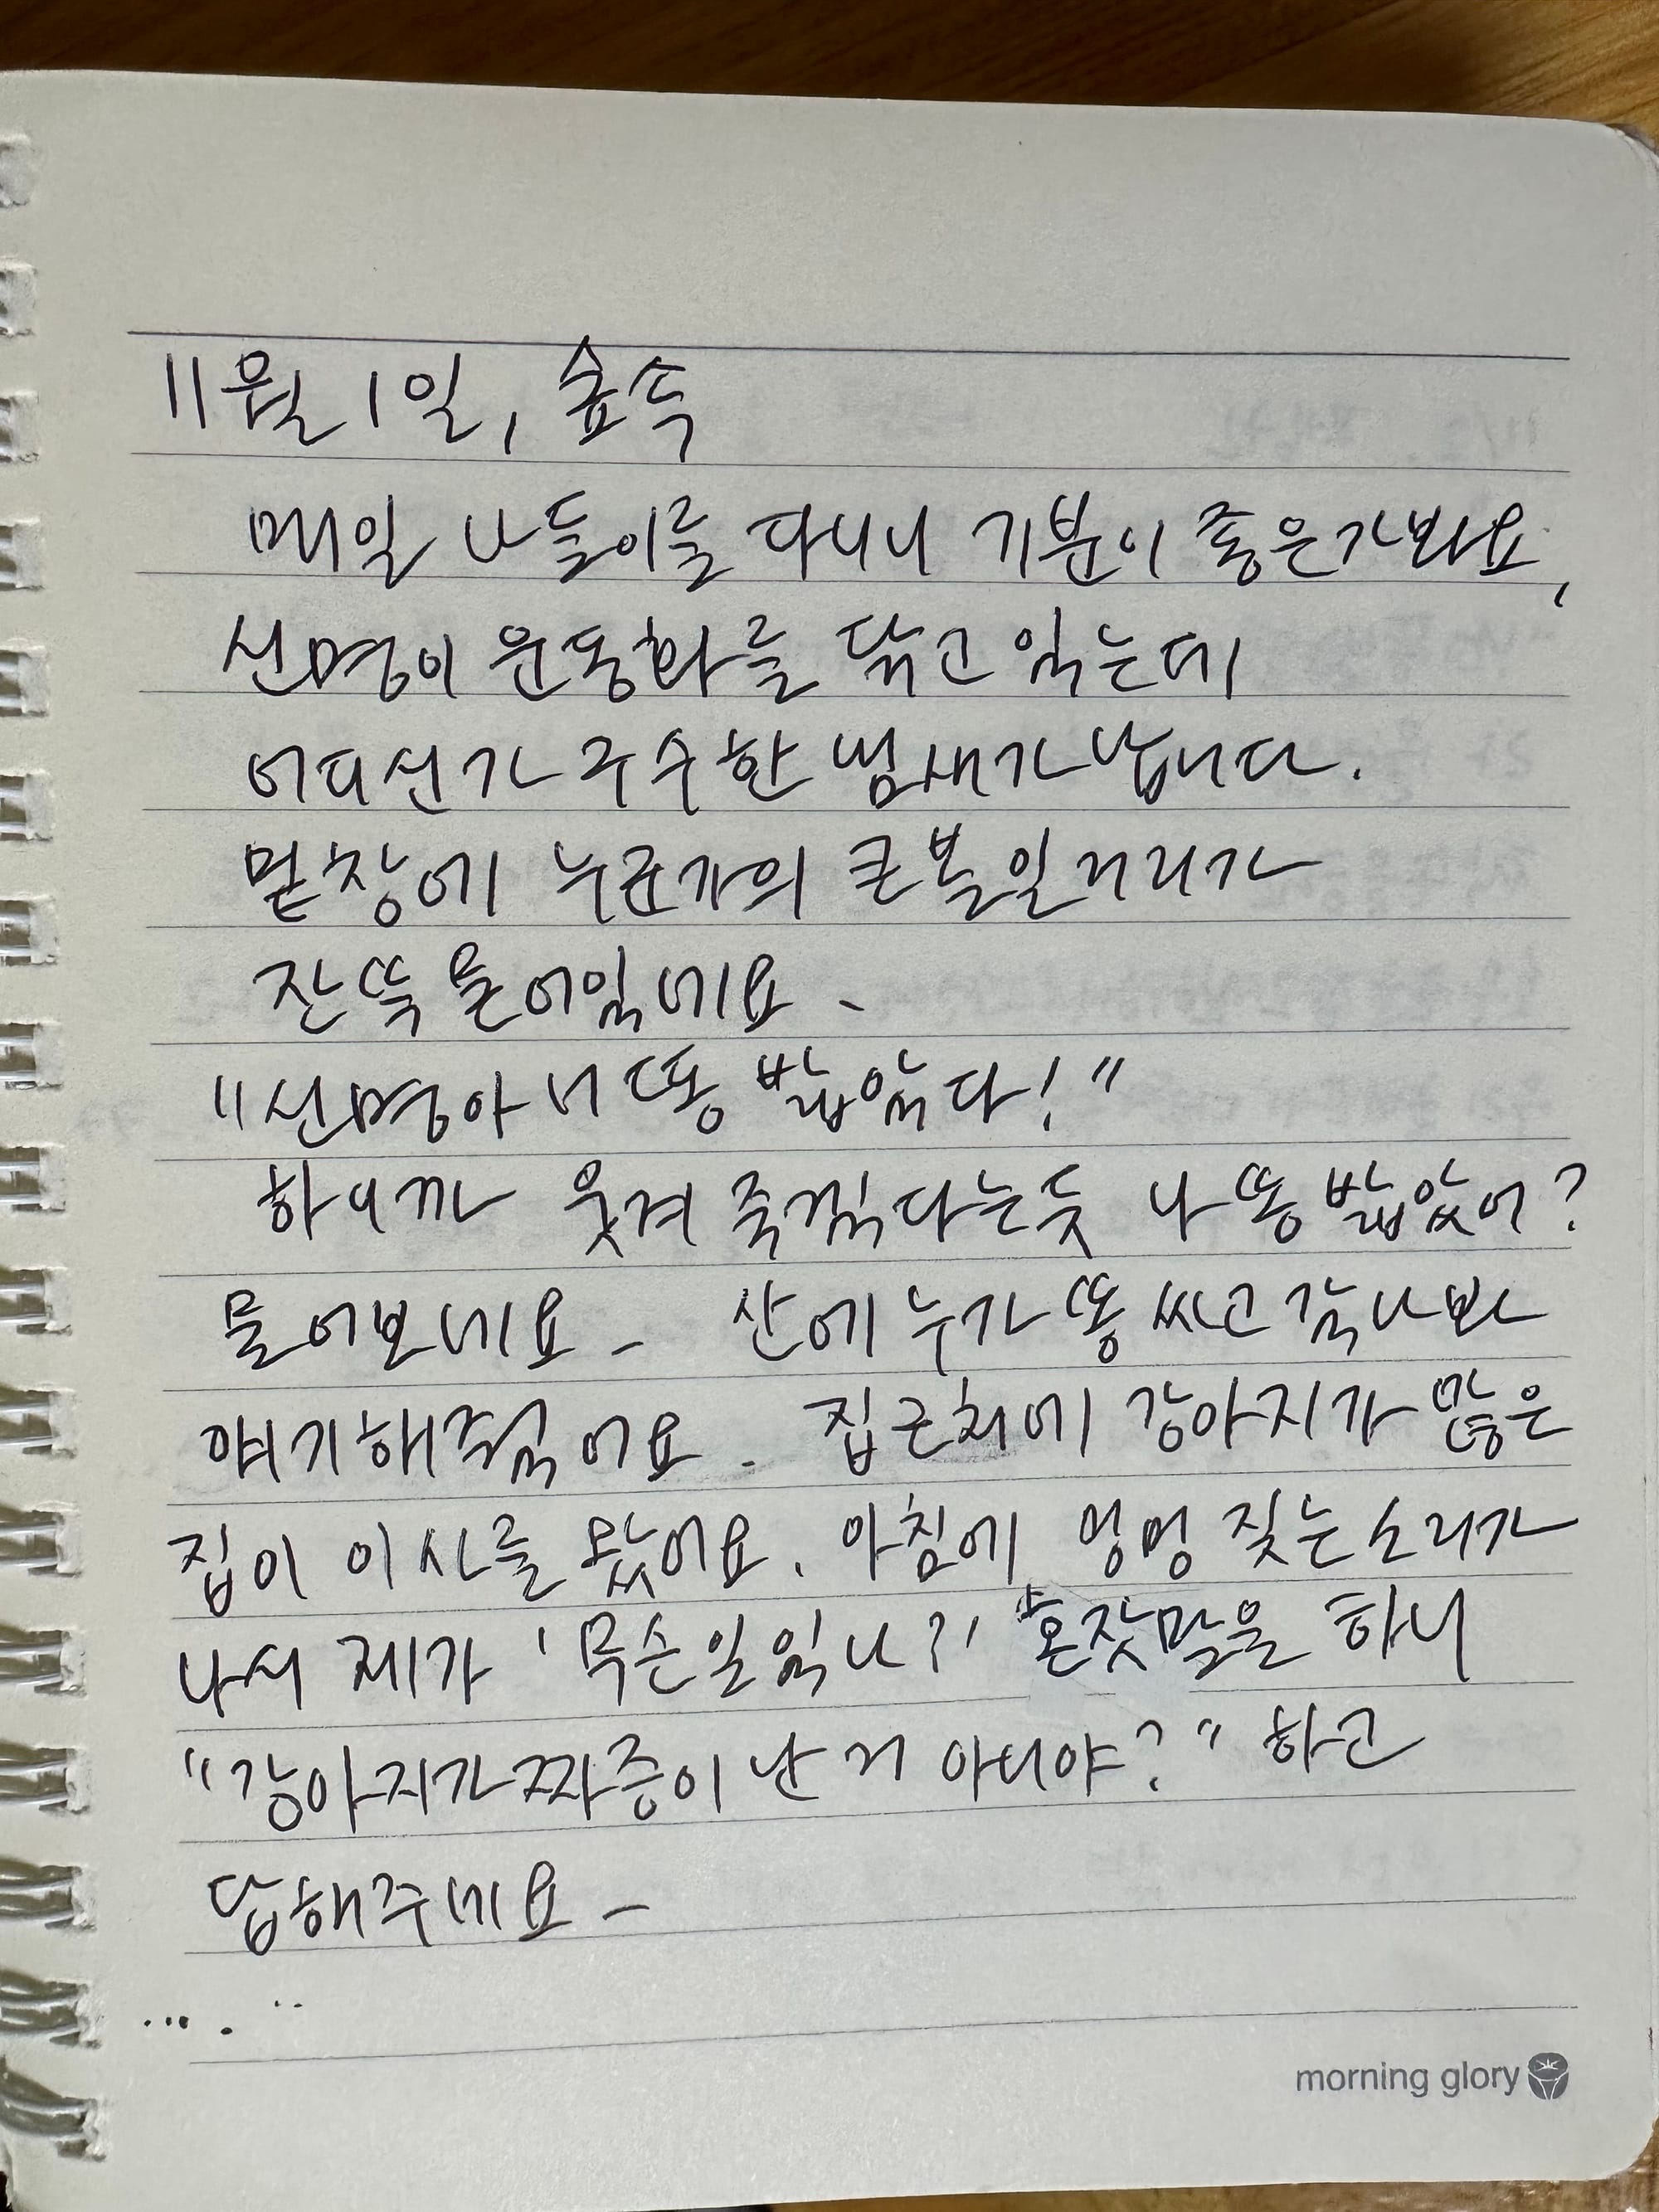 11월 1일, 숲속
매일 나들이를 다니니 기분이 좋은가봐요,
선명이 운동화를 닦고 있는데
어디선가 구수한 냄새가 납니다.
밑창에 누군가의 큰볼일거리가
잔뜩 묻어있네요 -
"선명아 너 똥 밟았다!"
하니까 웃겨 죽겠다는듯 나 똥 밟았어?
물어보네요 - 산에 누가 똥 싸고 갔나봐
얘기해주었어요. 집 근처에 강아지가 많은
집이 이사를 왔어요. 아침에 멍멍 짖는 소리가
나서 제가 '무슨일 있나?' 혼잣말을 하니
"강아지가 짜증이 난 거 아니야?" 하고
답해주네요 -
morning glory